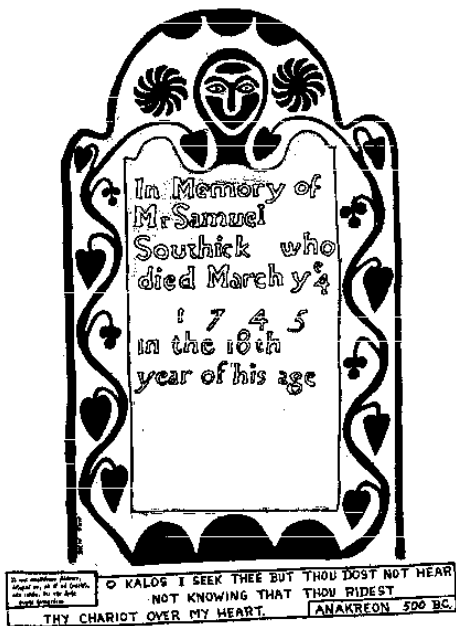 In Memory of
Mr Samuel
Southick who
died March yᵉ 4
1745
in the 18th
year of his age
O KALOS I SEEK THEE BUT THOU DOST NOT HEAR
NOT KNOWING THAT THOU RIDEST
THY CHARIOT OVER MY HEART.
ANAKREON 500 B.C.